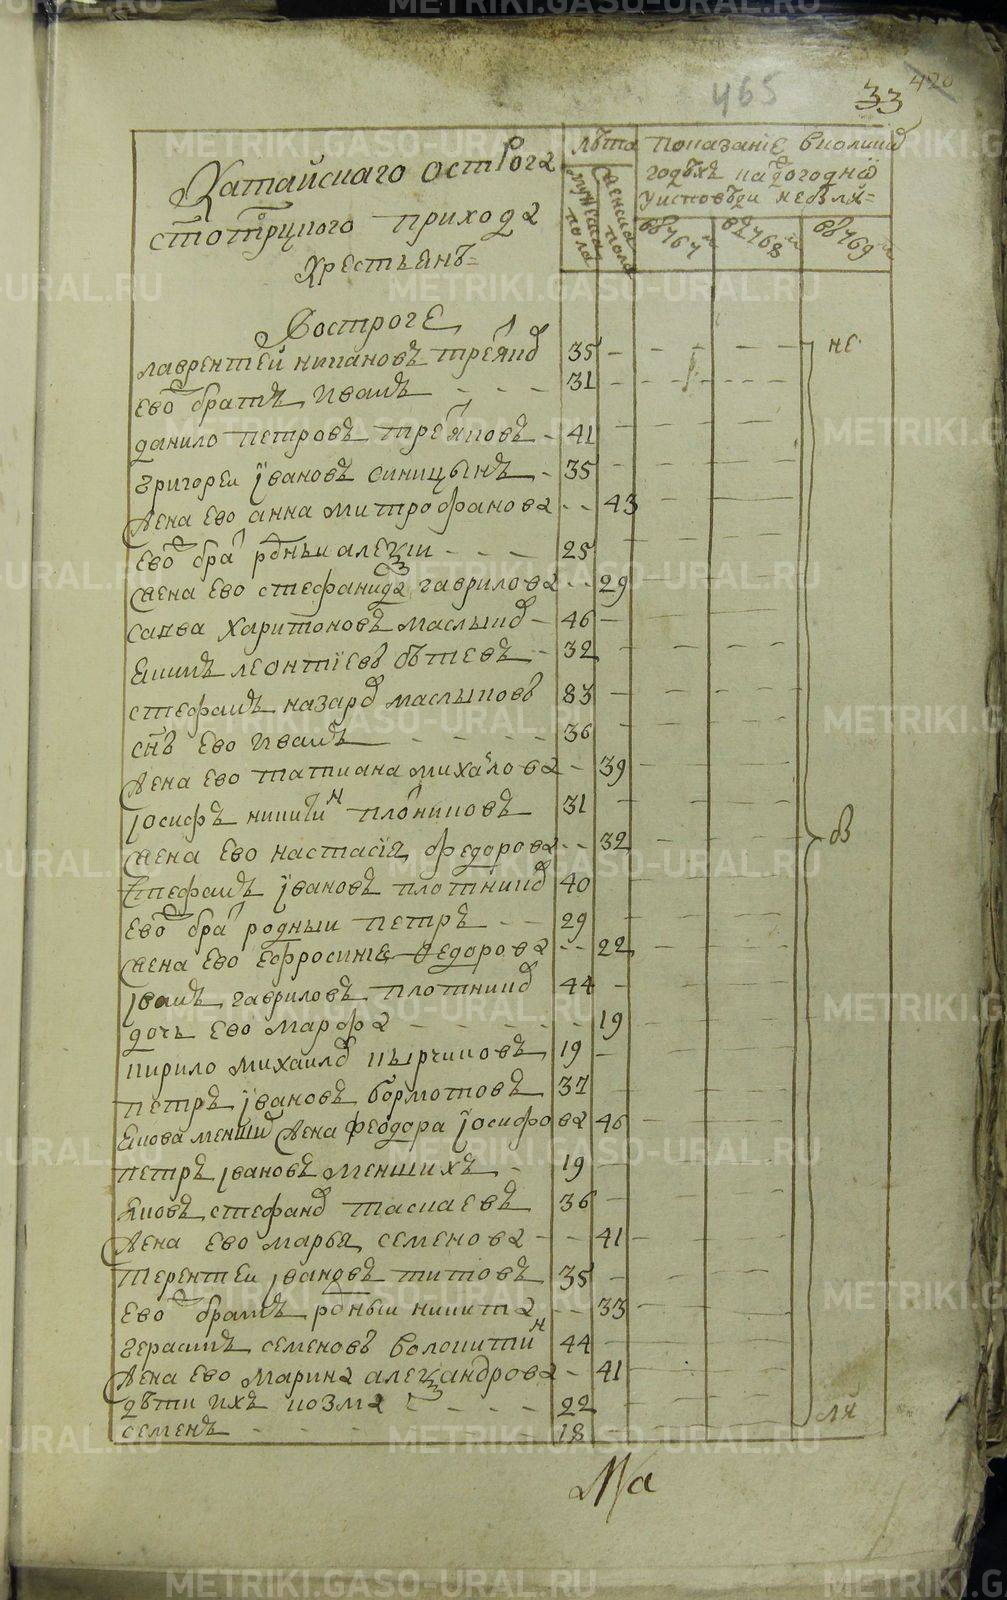 465
33
420
Катайского острога
стотроцкого прихода
крестьянъ
лѣта
мужеска пола
женска пола
показаніе в коликїх
годѣхъ кажогодно
у исповѣди не были
в 1767 м
в 1768 м
в 1769 м
Вострoге
лаврентей никановъ треяпиц 35
ево братъ иванъ 31
данило петровъ треяповъ 41
григореи ївановъ синицынъ 35
жена ево анна митрофанова 43
ево бра родныи алекѣи 25
жена ево стефанида гаврилова 29
савва харитоновъ маслыков 46
якимъ леонтїевъ бѣтевъ 32
стефанъ назаров маслыковъ 83
снъ ево иванъ 36
жена ево татиана михалова 39
їосифъ никитин плониковъ 31
жена ево настасїя федорова 32
стефанъ ївановъ плотников 40
ево бра родныи петръ 29
жена ево ефросинїе федорова 22
їванъ гавриловъ плотников 44
дочь ево марфа 19
кирило михаилов кырчиковъ 19
петръ ївановъ бормотовъ 37
якова менших жена феодора їосифова 46
петръ ївановъ меншихъ 19
яковъ стефанов таскаевъ 36
жена ево марья семенова 41
терентеи ївановъ титовъ 35
ево братъ родныи никита 33
герасимъ семеновъ волокитин 44
жена ево марина александрова 41
дѣти ихъ козма 22
семенъ 18
не
бы
ли